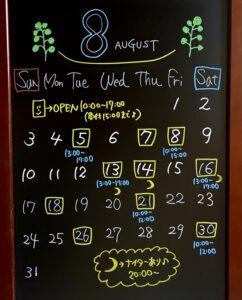 8 AUGUST
Sun Mon Tue Wed Thu Fri Sat
→OPEN 10:00~17:00
(受付15:00まで♪)
1 2
3 4 5 6 7 8 9
13:00~17:00 10:00~15:00
10 11 12 13 14 15 16
10:00~12:00 13:00~17:00
17 18 19 20 21 22 23
10:00~12:00
24 25 26 27 28 29 30
10:00~12:00
31
→ナイターあり♪
20:00~